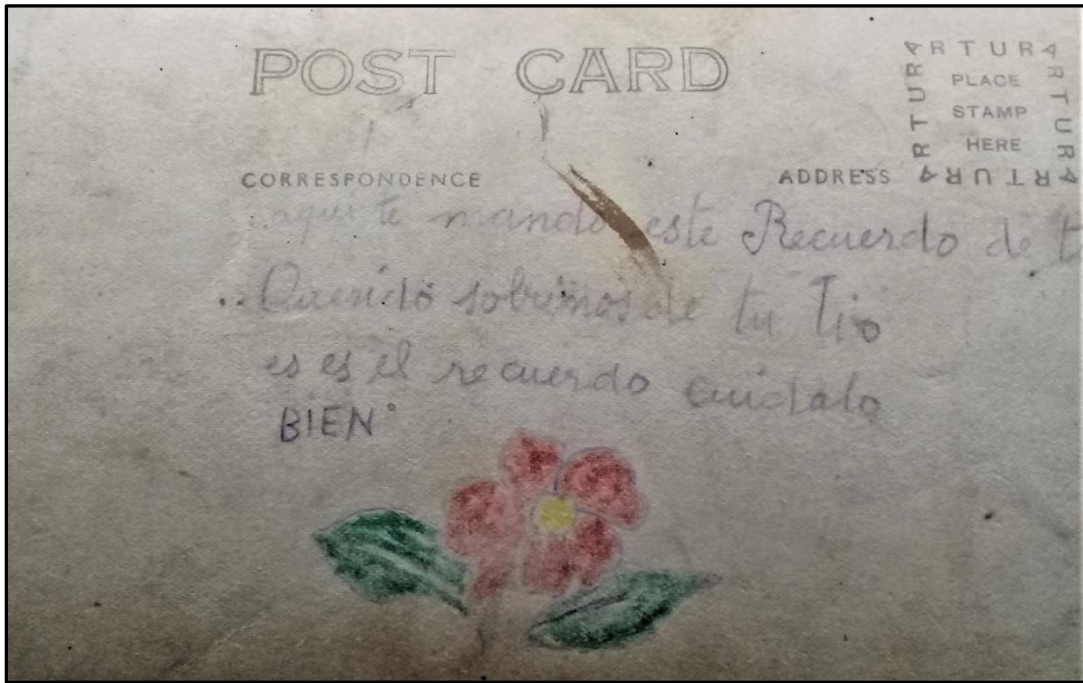 POST CARD
ARTURA
ARTURA
ARTURA
ARTURA
PLACE
STAMP
HERE
CORRESPONDENCE
ADDRESS
aqui te mando este Recuerdo de t
Querido sobrinos de tu Tio
es es el recuerdo cuidalo
BIEN